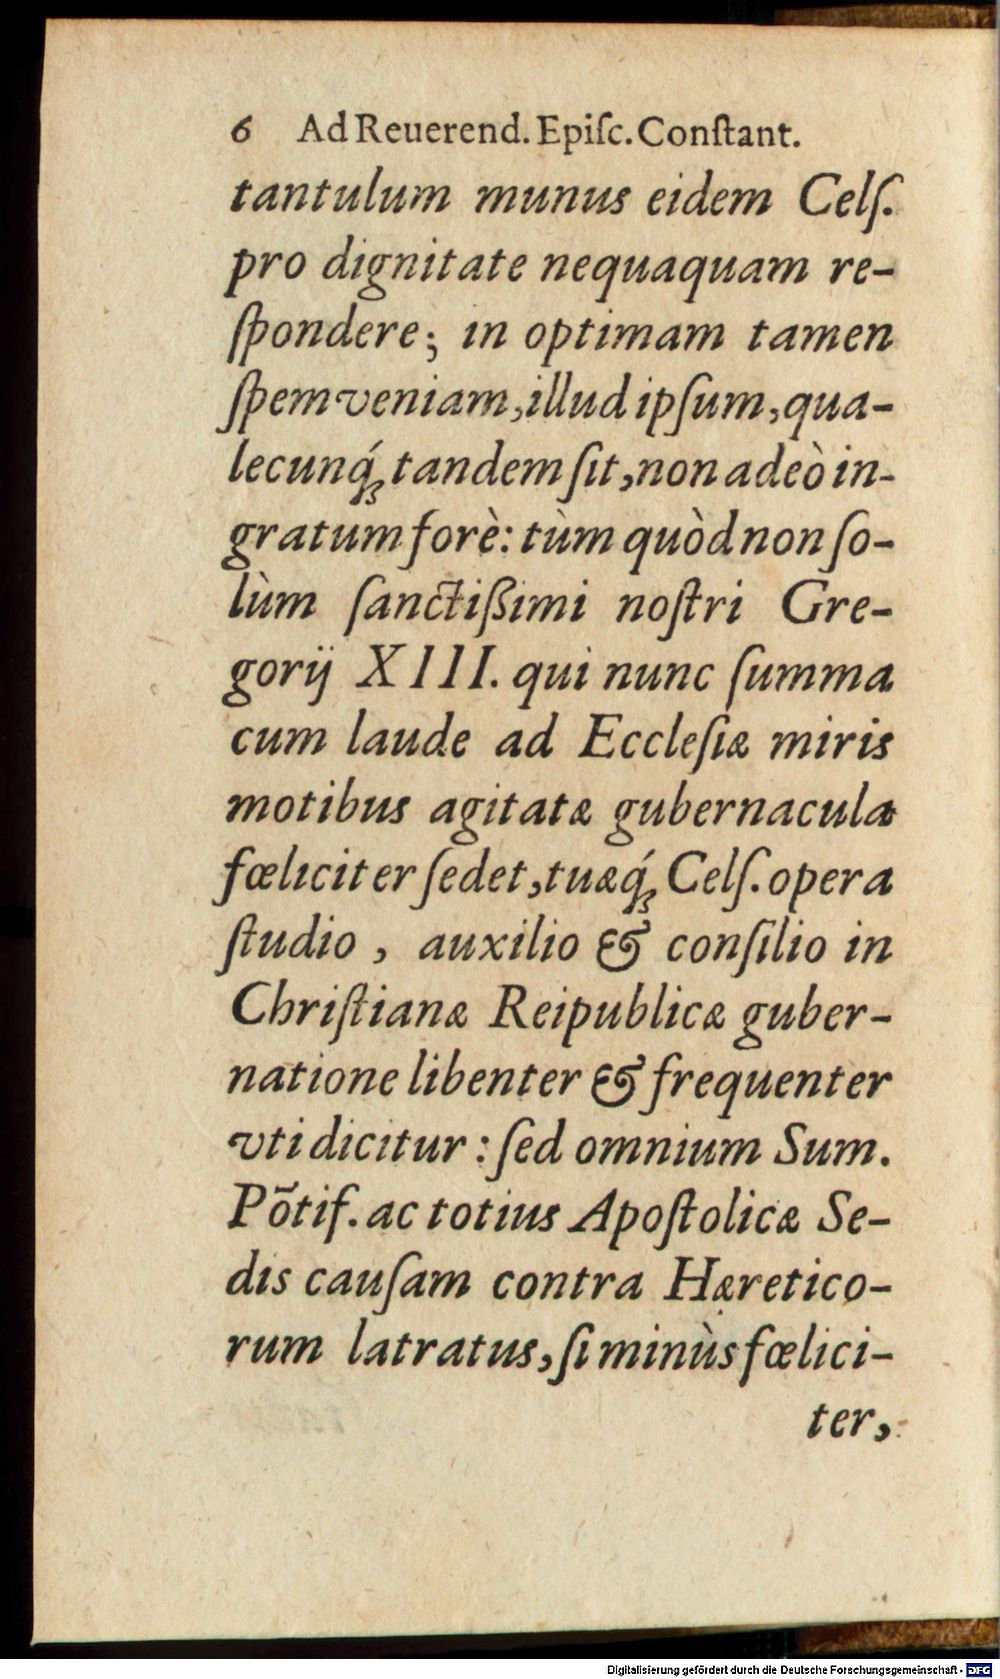 6 Ad Reuerend. Epiſc. Conſtant.
tantulum munus eidem Celſ.
pro dignitate nequaquam re-
ſpondere; in optimam tamen
ſpem veniam, illud ipſum, qua-
lecunq́ꝫ tandem ſit, non adeò in-
gratum forè: tùm quòd non ſo-
lùm ſanctißimi noſtri Gre-
gorij XIII. qui nunc ſumma
cum laude ad Eccleſiæ miris
motibus agitatæ gubernacula
fœliciter ſedet, tuæq́ꝫ Celſ. opera
ſtudio, auxilio & conſilio in
Chriſtianæ Reipublicæ guber-
natione libenter & frequenter
vti dicitur: ſed omnium Sum.
Põtif. ac totius Apoſtolicæ Se-
dis cauſam contra Hæretico-
rum latratus, ſi minùs fœlici-
ter,
Digitalisierung gefördert durch die Deutsche Forschungsgemeinschaft - DFG